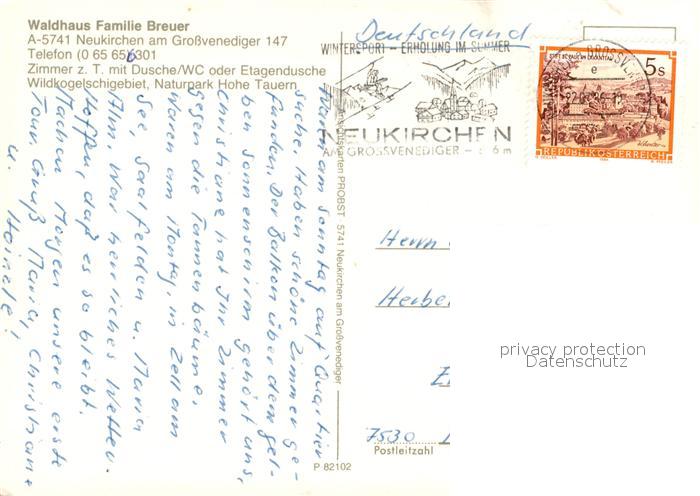 Waldhaus Familie Breuer
A-5741 Neukirchen am Großvenediger 147
Telefon (0 65 65) 6301
Zimmer z. T. mit Dusche/WC oder Etagendusche
Wildkogelschigebiet, Naturpark Hohe Tauern
Deutschland
WINTERSPORT – ERHOLUNG IM SOMMER
NEUKIRCHEN
AM GROSSVENEDIGER
GROSSVEN
5s
STIFT ST. PAUL IM LAVANTTAL
REPUBLIK ÖSTERREICH
Waren am Sonntag auf Quartier
suche. Haben schöne Zimmer ge-
funden. Der Balkon über dem gel-
ben Sonnenschirm gehört uns,
Christiane hat Ihr Zimmer
gegen die Tannenbäume.
Waren am Montag in Zell am
See, Saalfelden u. Maria
Alm. War herrliches Wetter.
Hoffen, daß es so bleibt.
Machen Morgen unsere erste
Tour. Gruß Maria, Christiane
u. Heinele!
Ansichtskarten PROBST 5741 Neukirchen am Großvenediger
Herrn
Herbe
7530
Postleitzahl
P 82102
privacy protection
Datenschutz